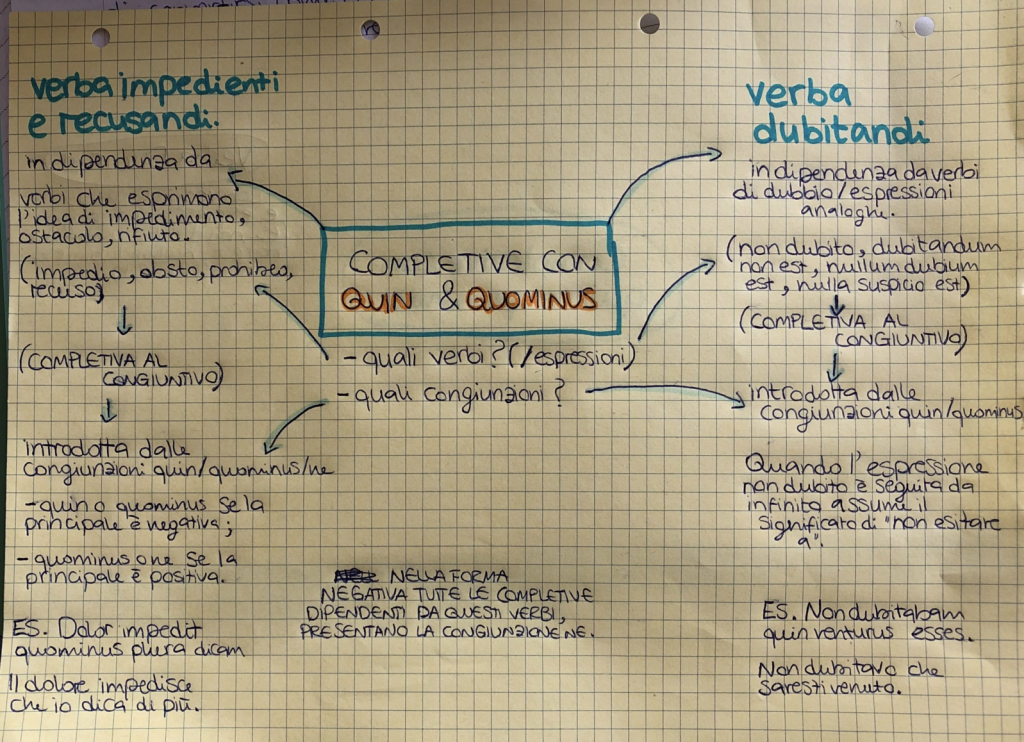 verba impedienti
e recusandi.
in dipendenza da
verbi che esprimono
l'idea di impedimento,
ostacolo, rifiuto.
(impedio, obsto, prohibeo,
recuso)
(COMPLETIVA AL
CONGIUNTIVO)
introdotta dalle
congiunzioni quin/quominus/ne
-quin o quominus se la
principale è negativa;
-quominus o ne se la
principale è positiva.
ES. Dolor impedit
quominus plura dicam
Il dolore impedisce
che io dica di più.
COMPLETIVE CON
QUIN & QUOMINUS
- quali verbi? (/espressioni)
- quali congiunzioni?
NELLA FORMA
NEGATIVA TUTE LE COMPLETIVE
DIPENDENTI DA QUESTI VERBI,
PRESENTANO LA CONGIUNZIONE NE.
verba
dubitandi
in dipendenza da verbi
di dubbio/espressioni
analoghe.
(non dubito, dubitandum
non est, nullum dubium
est, nulla suspicio est)
(COMPLETIVA AL
CONGIUNTIVO)
introdotta dalle
congiunzioni quin/quominus,
Quando l'espressione
non dubito è seguita da
infinito assume il
significato di "non esitare
a".
ES. Non dubitabam
quin venturus esses.
Non dubitavo che
saresti venuto.